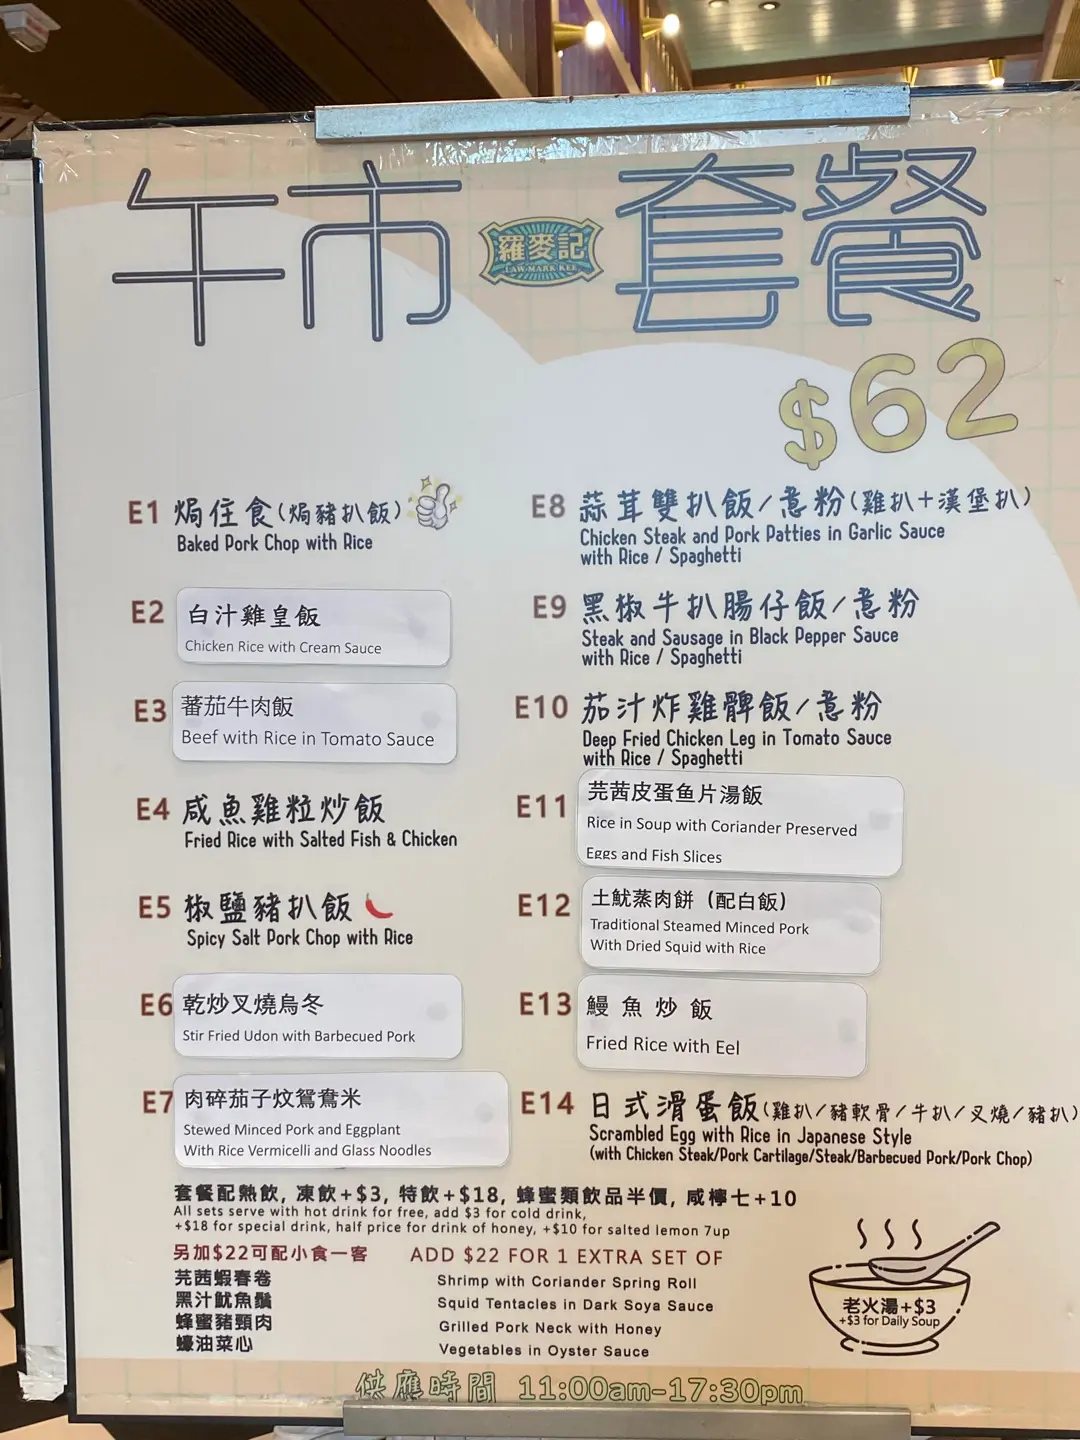 午市 套餐
羅麥記
LAW MARK KEE
$62
E1 焗住食(焗豬扒飯)
Baked Pork Chop with Rice
E2 白汁雞皇飯
Chicken Rice with Cream Sauce
E3 蕃茄牛肉飯
Beef with Rice in Tomato Sauce
E4 咸魚雞粒炒飯
Fried Rice with Salted Fish & Chicken
E5 椒鹽豬扒飯
Spicy Salt Pork Chop with Rice
E6 乾炒叉燒烏冬
Stir Fried Udon with Barbecued Pork
E7 肉碎茄子炆鴛鴦米
Stewed Minced Pork and Eggplant
With Rice Vermicelli and Glass Noodles
E8 蒜茸雙扒飯/意粉(雞扒+漢堡扒)
Chicken Steak and Pork Patties in Garlic Sauce
with Rice / Spaghetti
E9 黑椒牛扒腸仔飯/意粉
Steak and Sausage in Black Pepper Sauce
with Rice / Spaghetti
E10 茄汁炸雞髀飯/意粉
Deep Fried Chicken Leg in Tomato Sauce
with Rice / Spaghetti
E11 芫茜皮蛋鱼片湯飯
Rice in Soup with Coriander Preserved
Eggs and Fish Slices
E12 土魷蒸肉餅（配白飯）
Traditional Steamed Minced Pork
With Dried Squid with Rice
E13 鰻 魚 炒 飯
Fried Rice with Eel
E14 日式滑蛋飯(雞扒/豬軟骨/牛扒/叉燒/豬扒)
Scrambled Egg with Rice in Japanese Style
(with Chicken Steak/Pork Cartilage/Steak/Barbecued Pork/Pork Chop)
套餐配熱飲, 凍飲+$3, 特飲+$18, 蜂蜜類飲品半價, 咸檸七+10
All sets serve with hot drink for free, add $3 for cold drink,
+$18 for special drink, half price for drink of honey, +$10 for salted lemon 7up
另加$22可配小食一客 ADD $22 FOR 1 EXTRA SET OF
芫茜蝦春卷 Shrimp with Coriander Spring Roll
黑汁魷魚鬚 Squid Tentacles in Dark Soya Sauce
蜂蜜豬頸肉 Grilled Pork Neck with Honey
蠔油菜心 Vegetables in Oyster Sauce
老火湯+$3
+$3 for Daily Soup
供應時間 11:00am-17:30pm